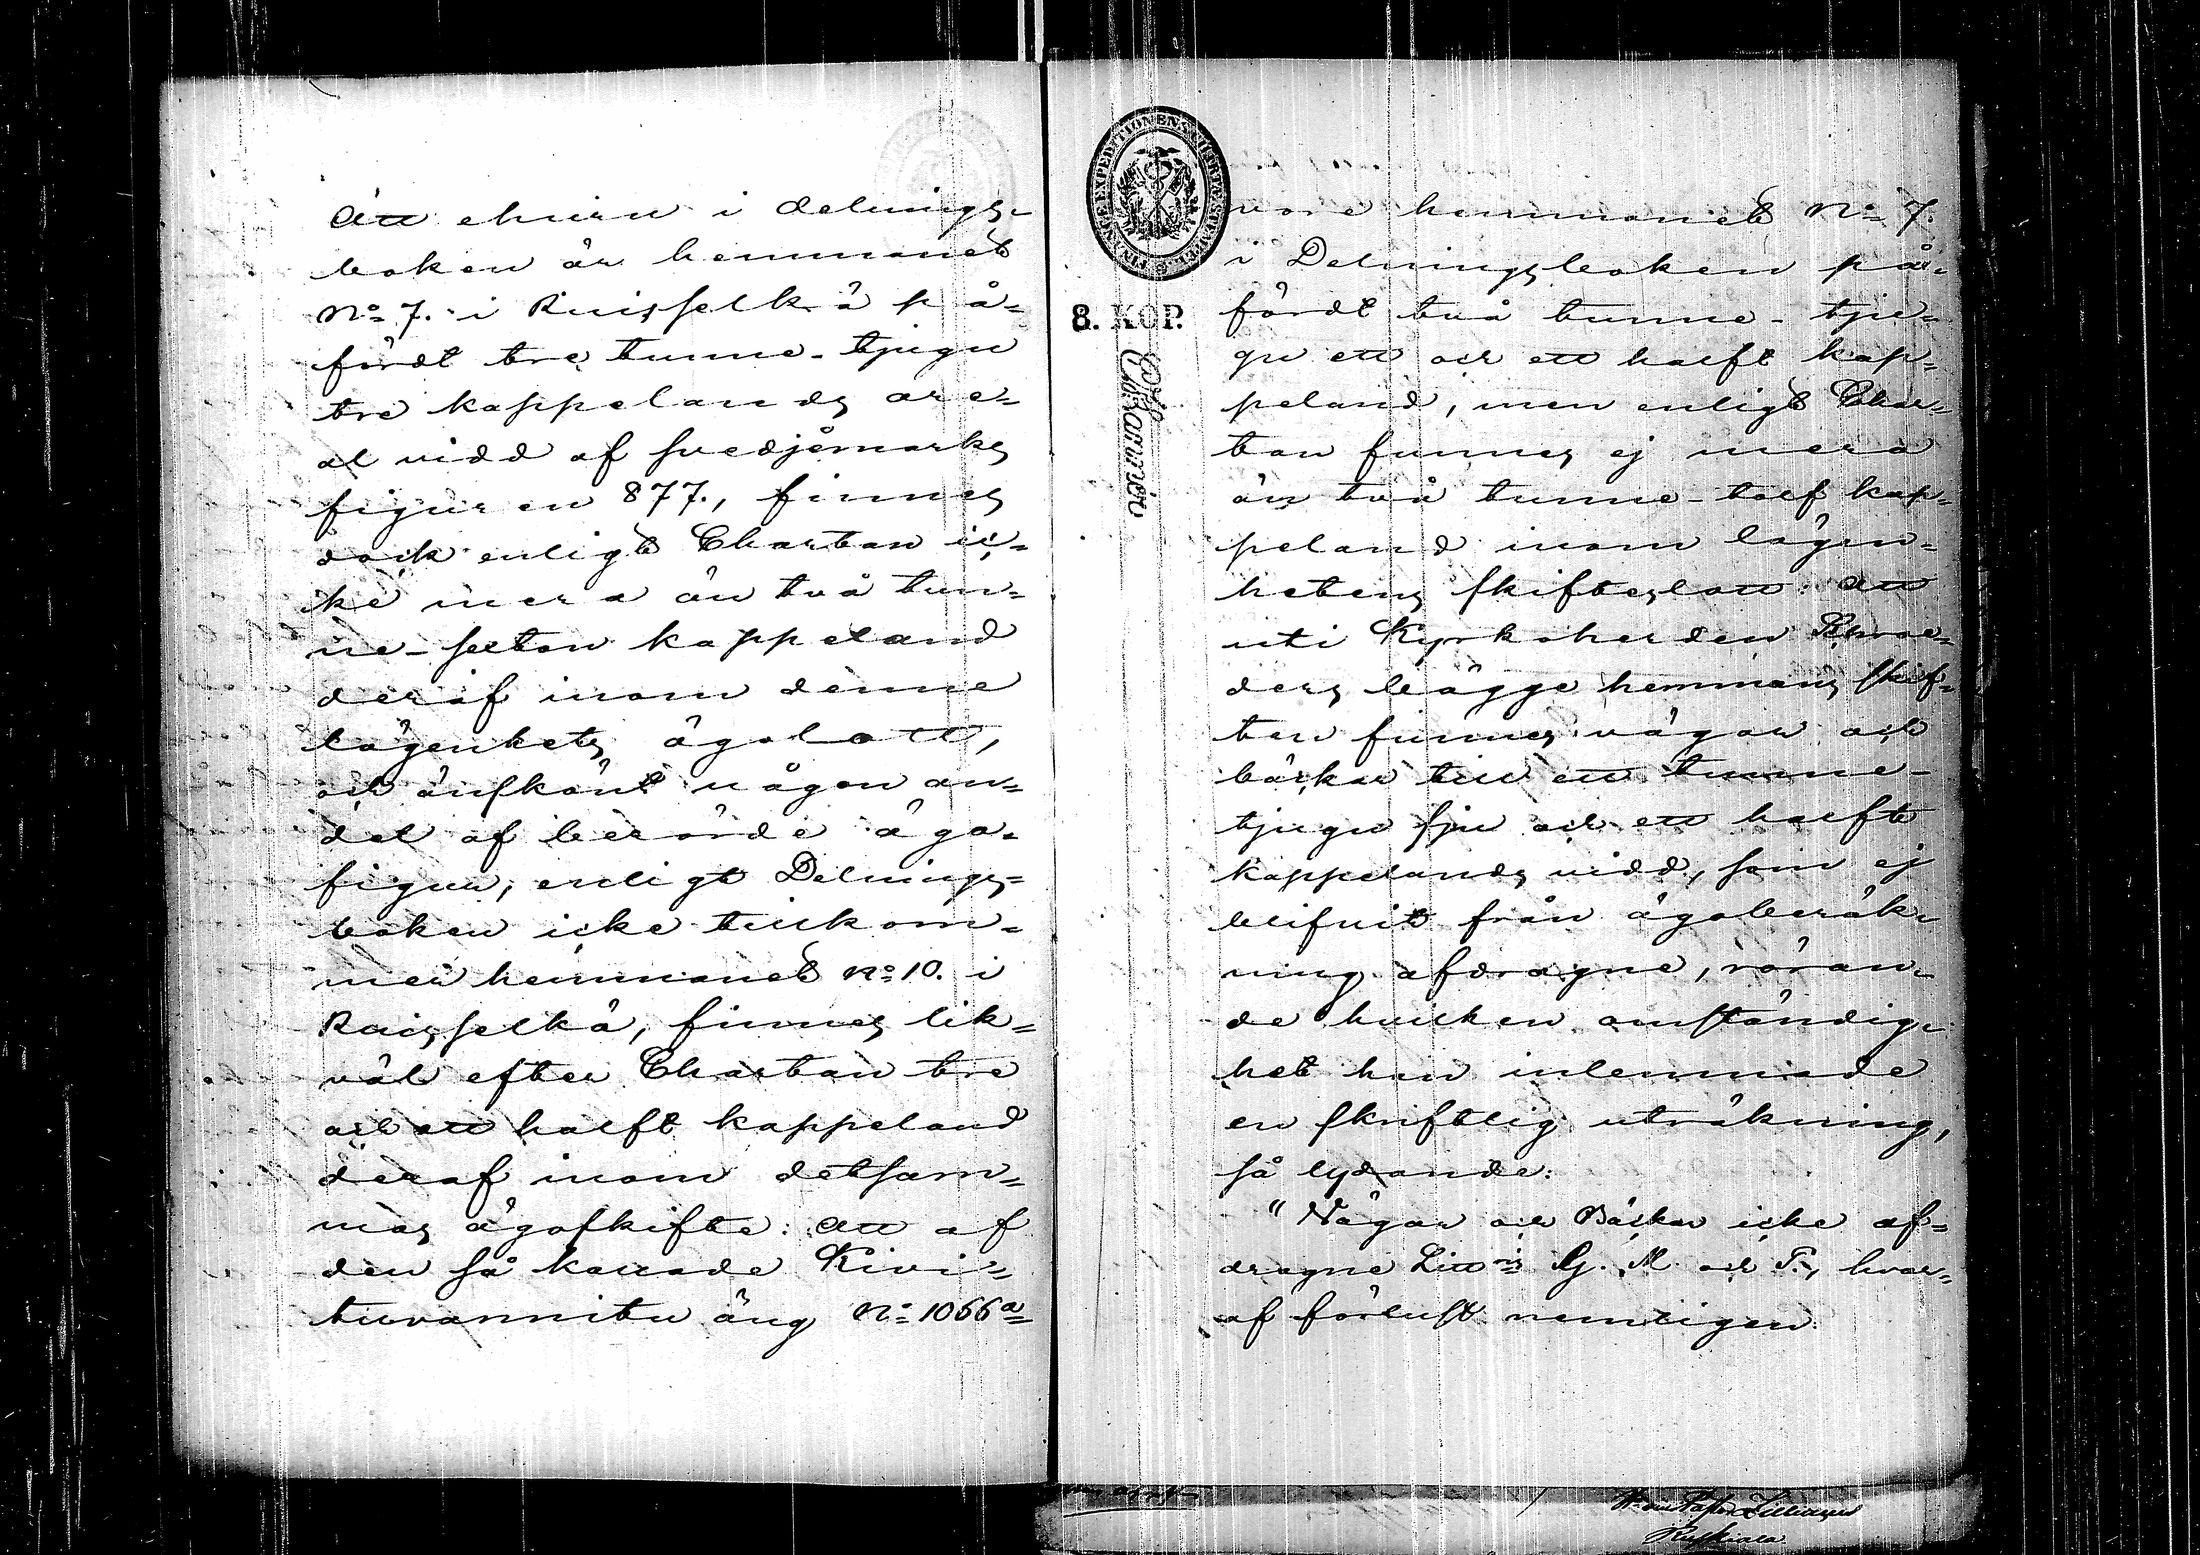 Att ehuru i delnings-
boken är hemmanet
No 7. i Ruisselkä på-
fördt tre tunne- tjugu
tre kappelands are-
al vidd af svedjemarks
figuren 877., finnes
dock enligt Chartan ic-
ke mera än två tun-
ne- sexton kappeland
deraf inom denne
lägenhets ägolott,
och änskönt någon an-
del af berörde ägo-
figur, enligt Delnings-
boken icke tillkom-
mer hemmanet No 10. i
Ruisselkä, finnes lik-
väl efter Chartan tre
och ett halft kappeland
deraf inom detsam-
mas ägoskifte: Att af
den så kallade Kivi-
tuvannitu äng No 1066a
FINANCE EXPEDITIONENS CHARTÆ STEMPEL
8. KOP.
vore hemmanet No 7.
i Delningsboken på-
fördt två tunne- tju-
gu ett och ett halft kap-
peland, men enligt Char-
tan funnes ej mera
än två tunne- tolf kap-
peland inom lägen-
hetens skifteslott: Att
uti Kyrkoherden
ders bägge hemmans skif-
ten finnes vägar och
bäckar till ett tunne-
tjugu sju och ett halft
kappelands vidd, som ej
blifvit från ägoberäk-
ning afdragne, röran-
de hvilken omständig-
het han inlemnade
en skriftlig uträkning,
så lydande:
"Vägar och Bäckar icke af-
dragne Litt:is G. M. och F., hvar-
af förlust nemligen: